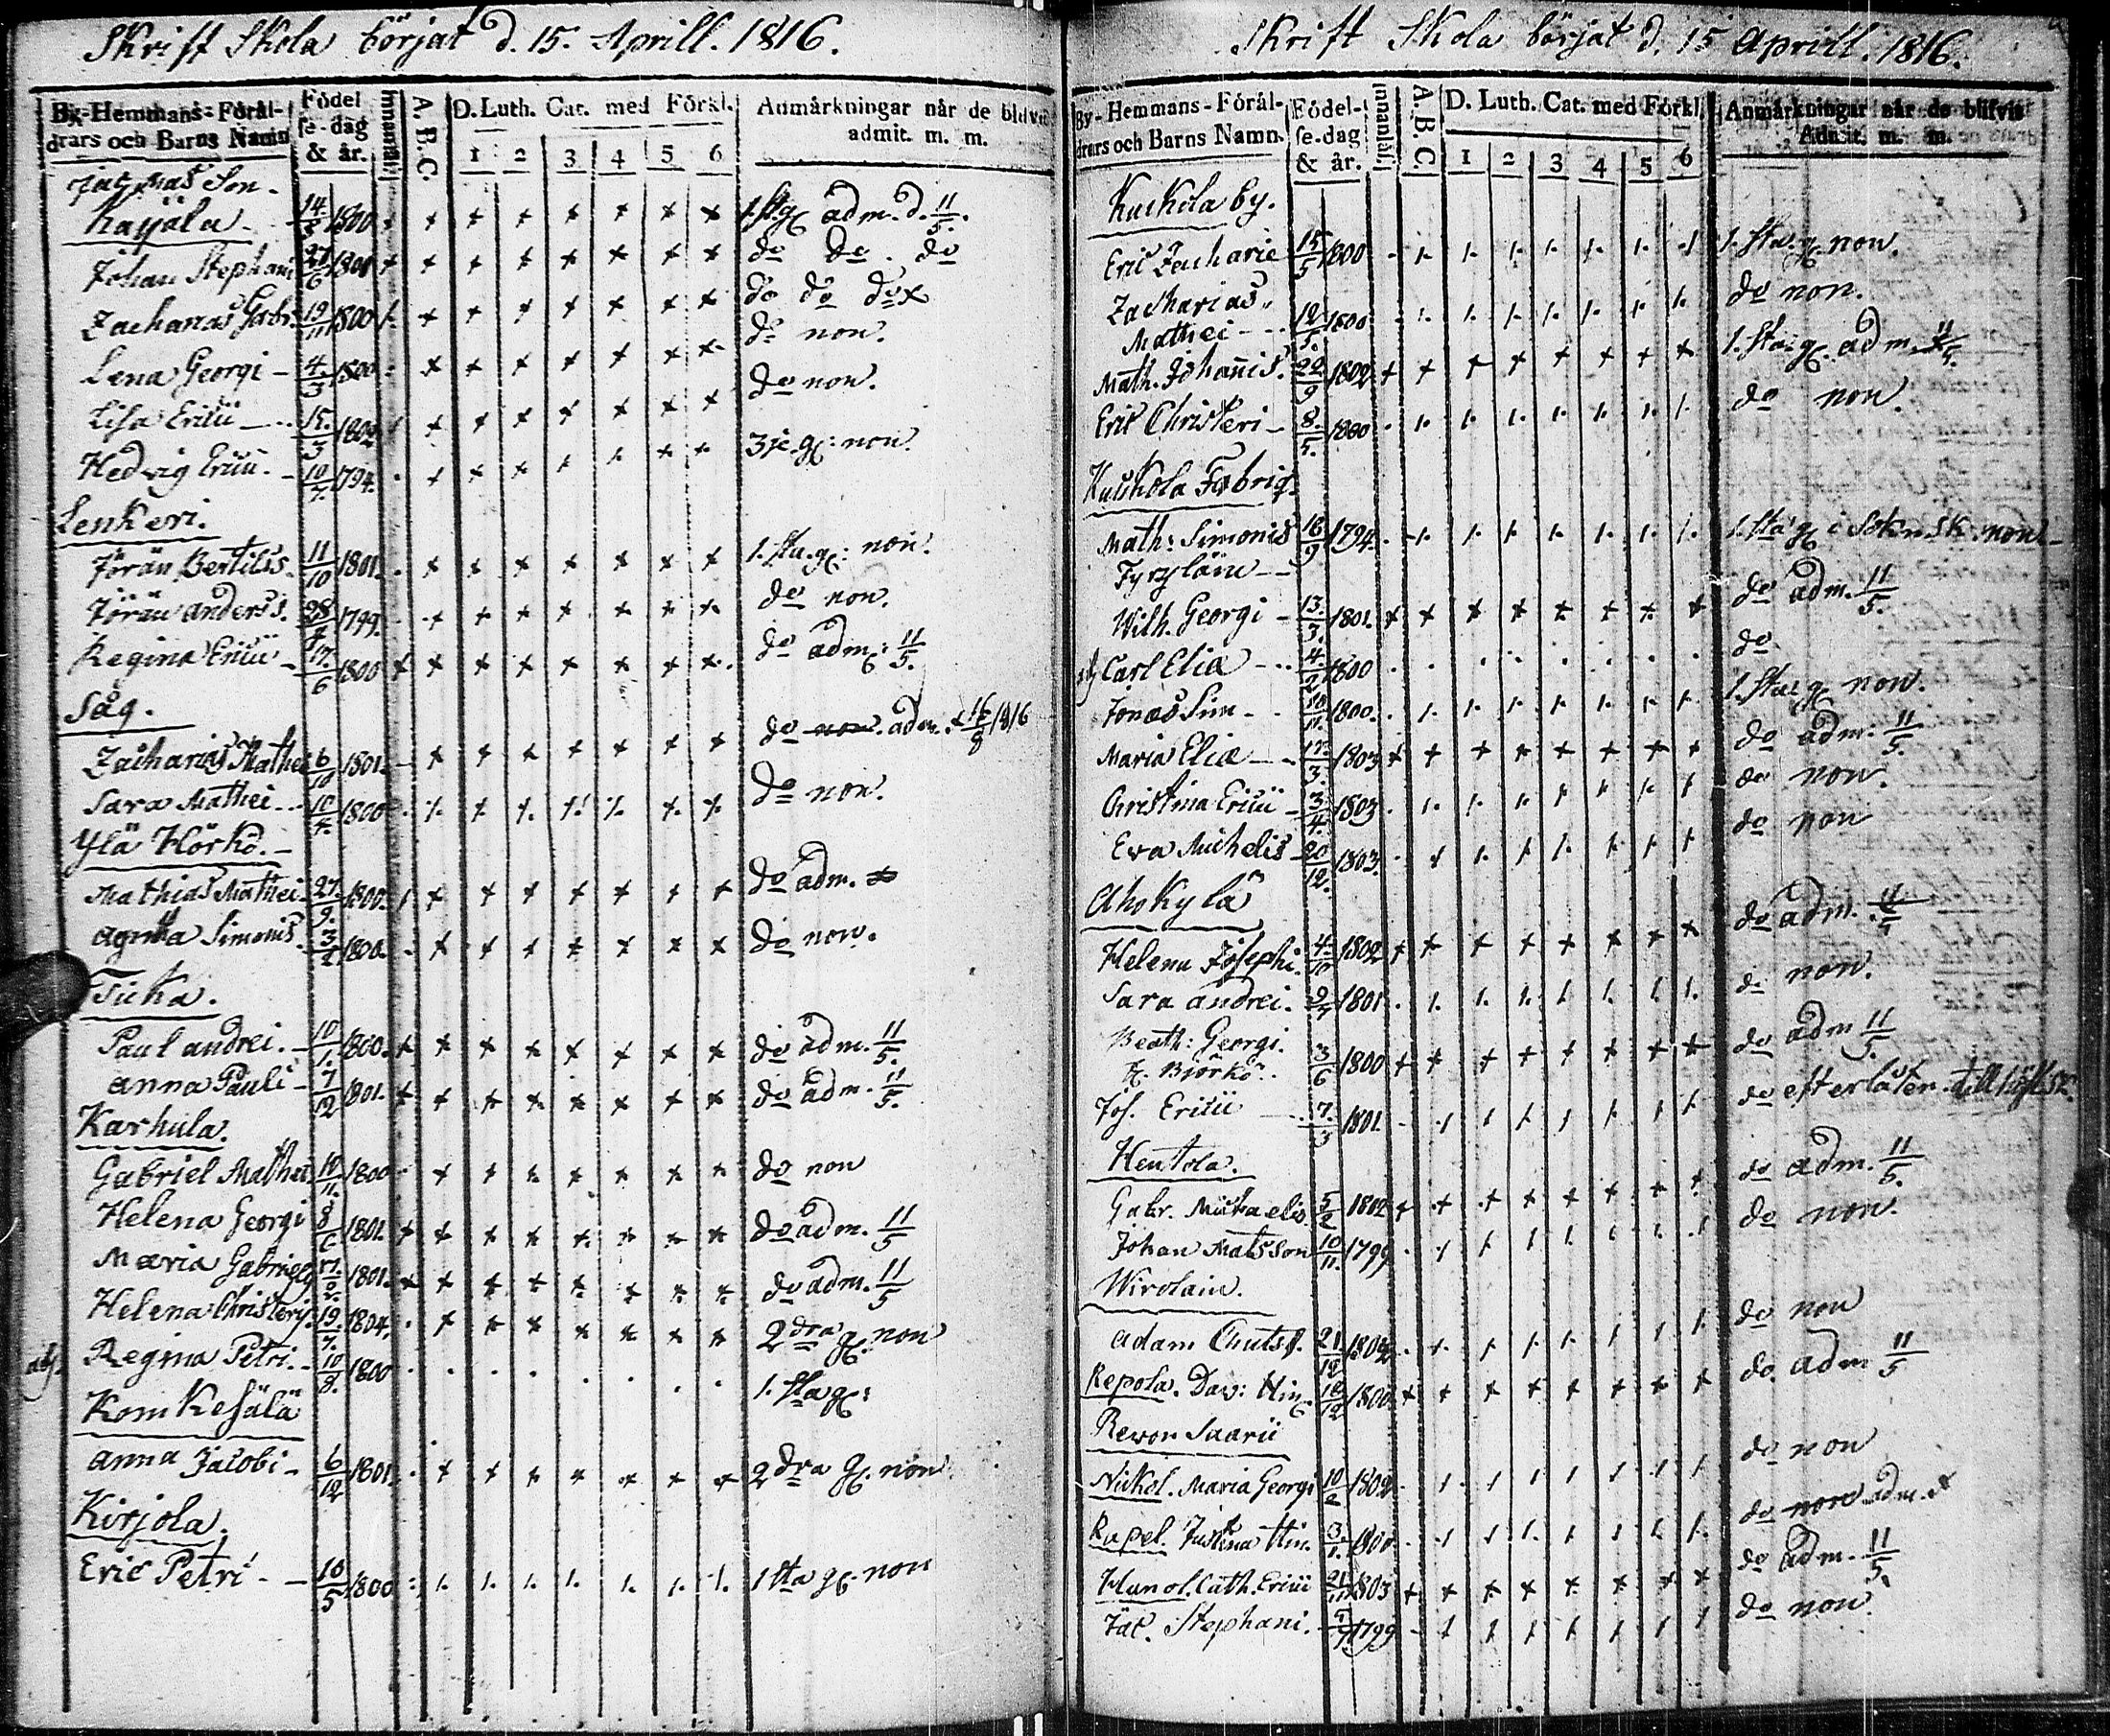 Skrift Skola börjat d. 15. Aprill. 1816.
By-Hemmans-Förål-drars och Barns Namn
Födel se-dag & år.
Innanläs.
A. B. C.
D. Luth. Cat. med Förkl.
1 2 3 4 5 6
Anmårkningar når de blifvit admit. m. m.
Jac. Mas Son.
Kayäla - 14 1800 1. stg adm. d. 11/5.
Johan Stephani 27/6 1801 do do. do
Zacharias Gabr. 19/11 1800 do do do x
Lena Georgi - 4/3 1800 do non.
Lisa Ericii - 15./3 1802 do non.
Hedvig Ericii. - 10/7. 1794. 3je. g: non.
Lenkeri.
Jöran Bertilss. 11/10 1801. 1. sta. g: non.
Jöran Anderss. 28 1799. do non.
Regina Ericii - 17./6 1800 do adm: 11/5.
Såg.
Zacharias Mathei 6/10 1801. do non. adm. 1816
Sara Mathei - 10/4. 1800 do non.
Ylä Hörkö. -
Mathias Mathei - 27./9. 1800. do adm.
Agneta Simonis. 3 1800. do non.
Ticka.
Paul Andrei. - 10/1. 1800. do adm. 11/5.
Anna Pauli - 7/12 1801. do adm. 11/5.
Karhula.
Gabriel Mathei 10/11. 1800 do non
Helena Georgi 8 1801. do adm. 11/5
Maria Gabrielis 1801. do adm. 11/5
Helena Christeri. 19./7. 1804. 2dra g. non
Regina Petri. - 10/8. 1800 1. sta g:
Kom Kesälä
Anna Jacobi - 6/12 1801. 2dra g. non
Kirjola.
Eric Petri - 10/5 1800 1sta g. non
Skrift Skola börjat d. 15 Aprill. 1816.
By-Hemmans-Förål-drars och Barns Namn.
Födel-se-dag & år.
Innanläs.
A. B. C.
D. Luth. Cat. med Förkl.
1 2 3 4 5 6
Anmårkningar når de blifvit Admit. m. m.
Kuckola by.
Eric Zacharie 15/5 1800 1. sta. g. non.
Zacharias
Mathei - 12 1800 do non.
Math. Johanis. 22/9 1802 1. sta. g. adm. 11/5.
Eric Christeri - 8./5. 1800 do non.
Kuckola Fabriq.
Math: Simonis 18/9 1794. 1. sta g i non
Wilh. Georgi - 13./3. 1801. do adm. 11/5.
Carl Eliæ - 4. 1800 do
Jonas Sim - 1800. 1. sta g non.
Maria Eliæ - 17./3. 1803 do adm: 11/5.
Christina Ericii 3/4. 1803 do non.
Eva Michelis 20/12. 1803. do non
Ahokylä
Helena Josephi. 4./10 1802 do adm. 11/5
Sara Andrei. 9 1801 do non.
Beath: Georgi.
Björkö. 3/6 1800 do adm 11/5.
Jos. Ericii - 7./3 1801. do efterlåten
Hentola.
Gabr. Michaelis. 5/2 1802 do adm. 11/5.
Johan Matsson 10/11. 1799 do non.
Wirolain.
Adam 21/12 1802 do non
Repola. Dav: Hin 1800 do adm 11/5
Revon Saarii
Nickol. Maria Georgi 10/2 1802 do non
Rapel. Justina Hin. 3./1. 1800 do non adm.
Hanol. Cath. Ericii 21/11 1803 do adm. 11/5.
Jac. Stephani. 1799 do non.